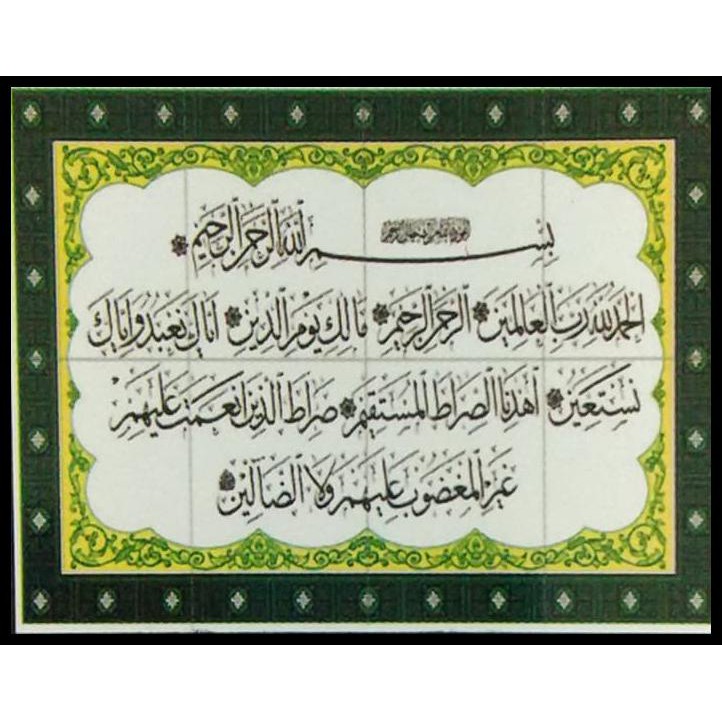 بسم الله الرحمن الرحيم
الحمد لله رب العالمين الرحمن الرحيم مالك يوم الدين اياك نعبد واياك
نستعين اهدنا الصراط المستقيم صراط الذين انعمت عليهم
غير المغضوب عليهم ولا الضالين